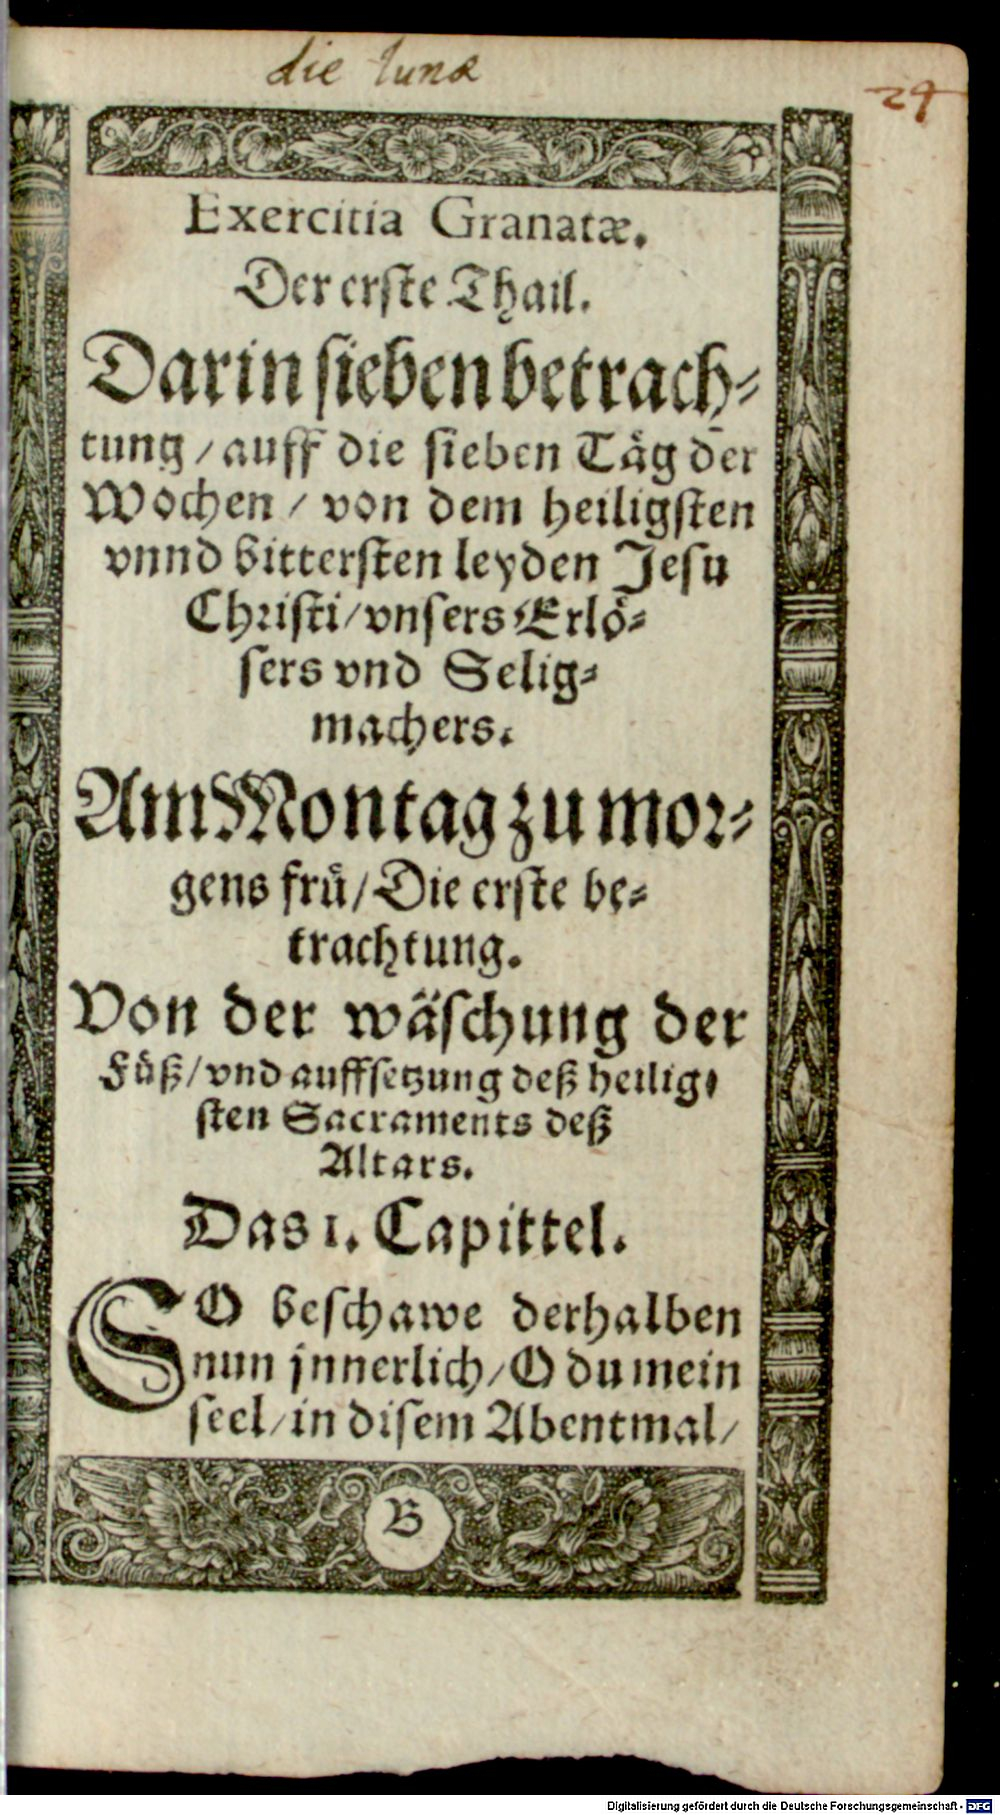 die lunæ
29
Exercitia Granatæ.
Der erste Thail.
Darin sieben betrach⸗
tung / auff die sieben Täg der
Wochen / von dem heiligsten
vnnd bittersten leyden Jesu
Christi / vnsers Erlö⸗
sers vnd Selig⸗
machers.
Am Montag zu mor⸗
gens frü / Die erste be⸗
trachtung.
Von der wäschung der
Füß / vnd auffsetzung deß heilig⸗
sten Sacraments deß
Altars.
Das 1. Capittel.
SO beschawe derhalben
nun jnnerlich / O du mein
seel / in disem Abentmal /
B
Digitalisierung gefördert durch die Deutsche Forschungsgemeinschaft - DFG